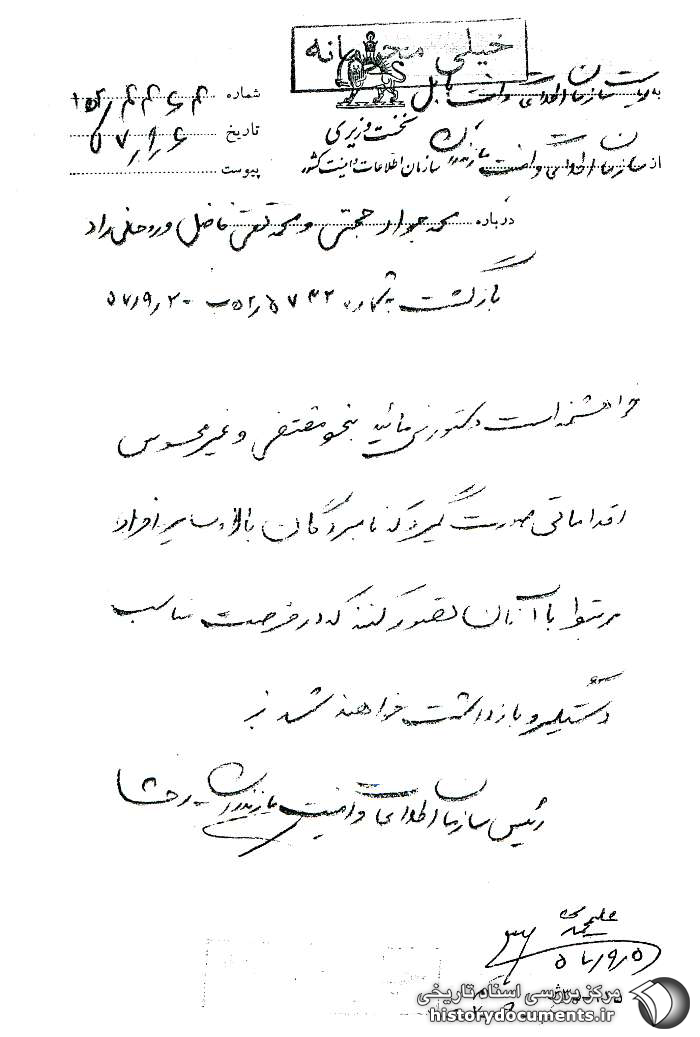 خیلی محرمانه
به ریاست سازمان اطلاعات و امنیت بابل
شماره
نخست وزیری
تاریخ ۵۷/۹/۶
از سازمان اطلاعات و امنیت مازندران
سازمان اطلاعات و امنیت کشور
پیوست
درباره محمد جواد حجتی و محمد تقی فاضل و روحانی راد
بازگشت به شماره ۵۷/۹/۲
خواهشمند است دستور فرمائید بنحو مقتضی و غیر محسوس
اقداماتی صورت گیرد که نامبردگان بالا و سایر افراد
مرتبط با آنان تصور کنند که در فرصت مناسب
دستگیر و بازداشت خواهند شد
رئیس سازمان اطلاعات و امنیت مازندران
مرکز بررسی اسناد تاریخی
historydocuments.ir